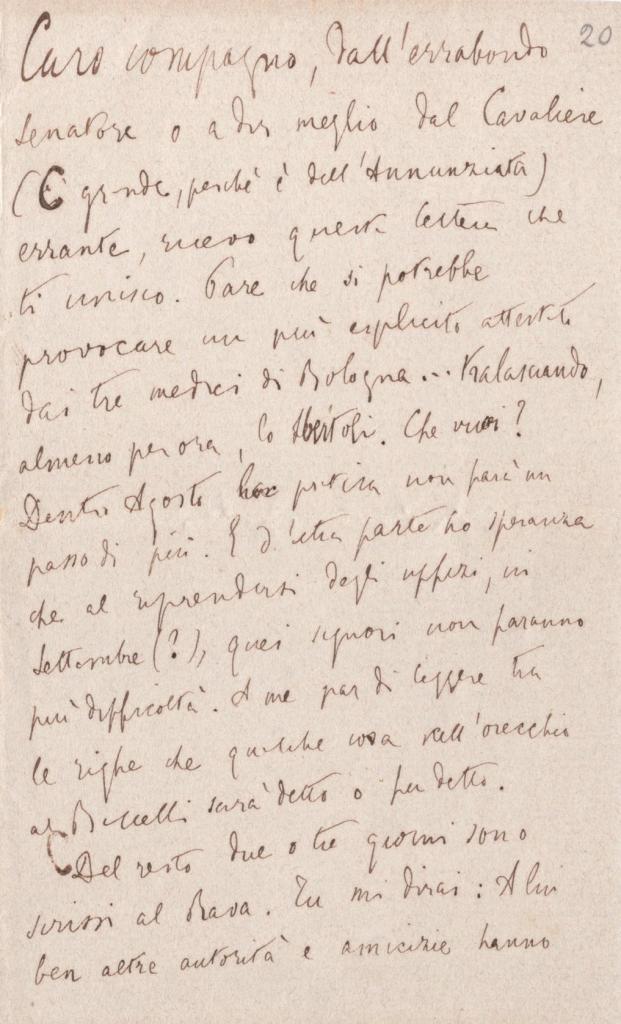 20
Caro compagno, dall'errabondo
senatore o a dir meglio dal Cavaliere
(C grande, perchè è dell'Annunziata)
errante, ricevo questa lettera che
ti unisco. Pare che si potrebbe
provocare un più esplicito attestato
dai tre medici di Bologna... tralasciando,
almeno per ora, lo Albertoli. Che vuoi?
Dentro Agosto pratica non farà un
passo di più. E d'altra parte ho speranza
che al riprendersi degli uffizi, in
Settembre (?), quei signori non faranno
più difficoltà. A me par di leggere tra
le righe che qualche cosa nell'orecchio
al sarà detto o fu detto.
Del resto due o tre giorni sono
scrissi al Rava. Tu mi dirai: A lui
ben altre autorità e amicizie hanno